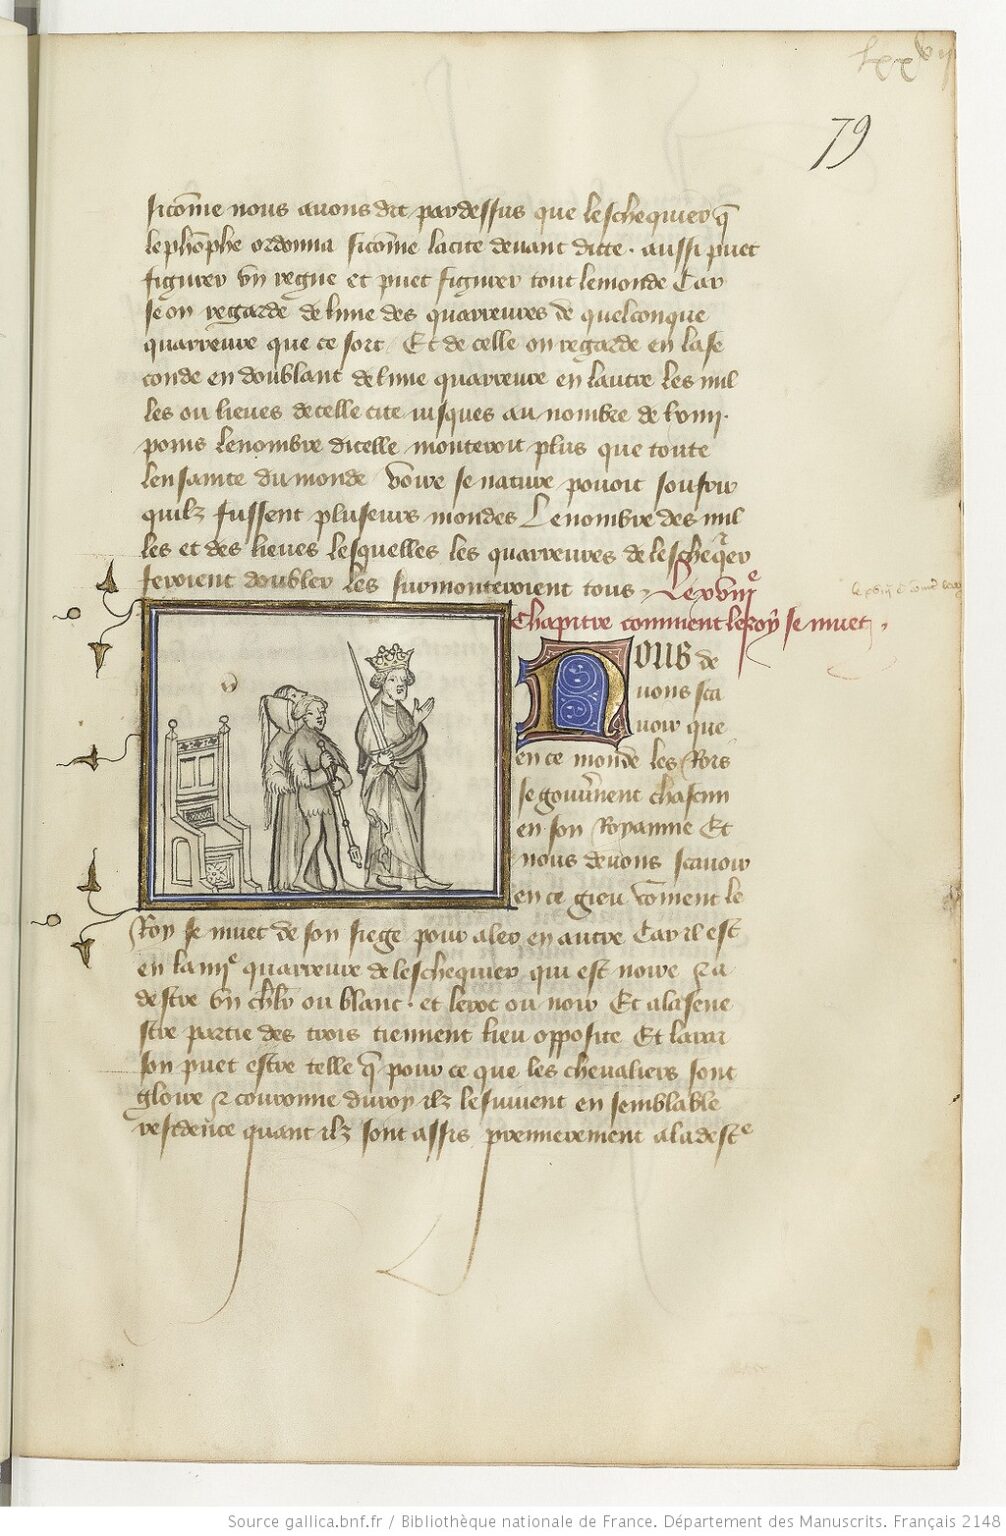 lxxvij
79
sicome nous auons dit pardessus que leschequier q̄
lephōphe ordonna sicōme lacite deuant dicte. aussi puet
figurer vn regne et puet figurer tout lemonde Car
se on regarde delune des quarreures de quelconque
quarreure que ce soit Et de celle on regarde en lase
conde en doublant delune quarreure en lautre les mil
les ou lieues decelle cite iusques au nombre de lxiiij.
poins lenombre dicelle monteroit plus que toute
du monde voire se nature pouoit soufrir
quilz fussent pluseurs mondes Lenombre des mil
les et des lieues lesquelles les quarreures de leschequier
feroient doubler les surmonteroient tous Lexviij e
chapitre comment leroy se muet
Nous de
uons sca
uoir que
en ce monde les Rois
se gouu̅nent chascun
en son Royaume Et
nous deuons scauoir
en ce gieu cōment le
Roy se muet de son siege pour aler en autre Car il est
en la iiij e quarreure de leschequier qui est noire & a
destre vn chl̅r ou blanc. et leroc ou noir Et alasene
stre partie des trois tiennent lieu opposite Et larai
son puet estre telle q̄ pour ce que les cheualiers sont
gloire & couronne duroy ilz lesuiuent en semblable
residēce quant ilz sont assis premierement a ladest e
Source gallica.bnf.fr / Bibliothèque nationale de France. Département des Manuscrits. Français 2148